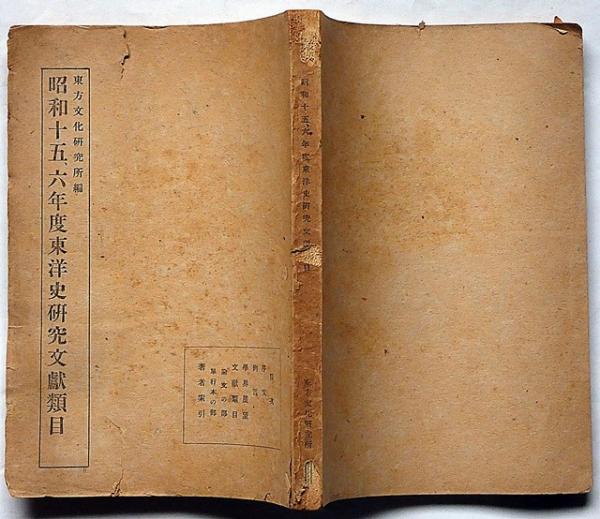 東方文化研究所編
昭和十五、六年度東洋史研究文獻類目
目次
序文
例言
學界展望
文獻類目
論文の部
單行本の部
著者索引
昭和十五、六年度東洋史研究文獻類目
東方文化研究所